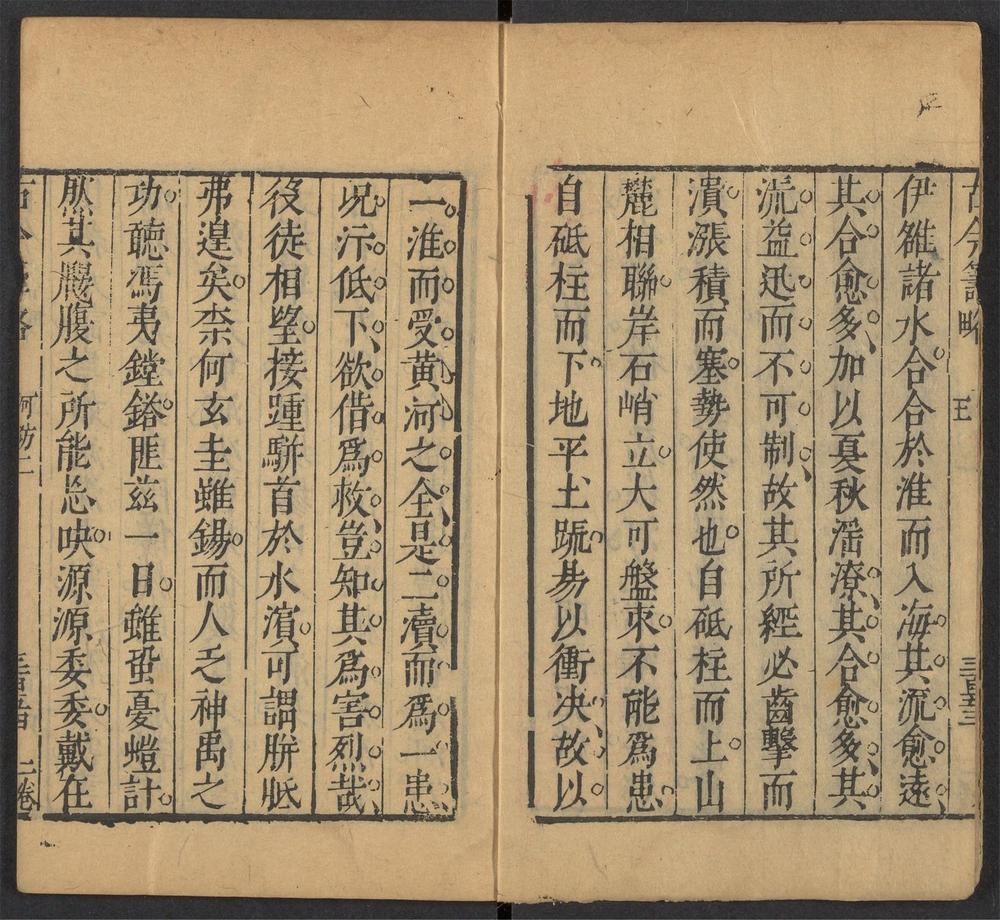 伊雒諸水合合於淮而入海其流愈遠
其合愈多加以夏秋滛潦其合愈多其
流益迅而不可制故其所經必齒擊而
潰漲積而塞勢使然也自砥柱而上山
麓相聯岸石峭立大可盤束不能爲患
自砥柱而下地平土䟽易以衝决故以
一淮而受黃河之全是二瀆而爲一患
况泝低下欲借爲救豈知其爲害烈哉
役徒相望接踵駢首於水濵可謂胼胝
弗遑矣柰何玄圭雖錫而人乏神禹之
功聽馮夷鏜鎝匪兹一日雖蛩憂螘計
然其鼹腹之所能忩咉源源委委戴在